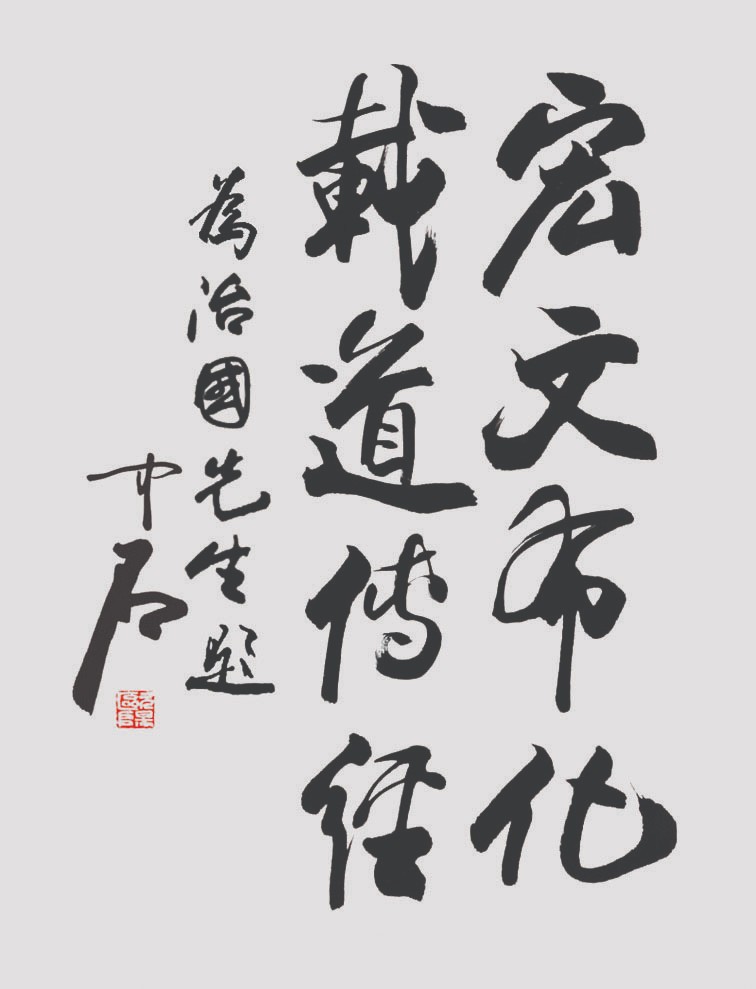 宏文布化
載道傳経
為治國先生題
中石